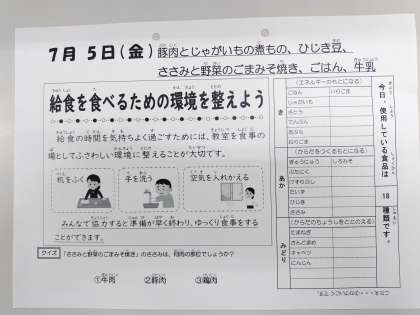 7月 5日(金) 豚肉とじゃがいもの煮もの、ひじき豆、
ささみと野菜のごまみそ焼き、ごはん、牛乳
給食を食べるための環境を整えよう
給食の時間を気持ちよく過ごすためには、教室を食事の
場としてふさわしい環境に整えることが大切です。
机をふく
手を洗う
空気を入れかえる
みんなで協力すると準備が早く終わり、ゆっくり食事をする
ことができます。
クイズ 「ささみと野菜のごまみそ焼き」のささみは、何肉の部位でしょうか?
①牛肉 ②豚肉 ③鶏肉
今日、使用している食品は
18
種類です。
き
(エネルギーのもとになる)
ごはん
いりごま
じゃがいも
さとう
でんぷん
あぶら
ねりごま
あか
(からだをつくるもとになる)
ぎゅうにゅう
しろみそ
ぶたにく
だいず
ひじき
ささみ
みどり
(からだのちょうしをととのえる)
たまねぎ
さんどまめ
キャベツ
にんじん